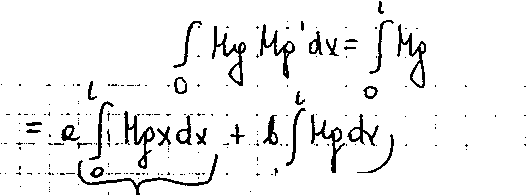 ∫₀ Mg Mp' dx = ∫₀ˡ Mg
= a ∫₀ˡ Mg x dx + b ∫ˡ Mg dx